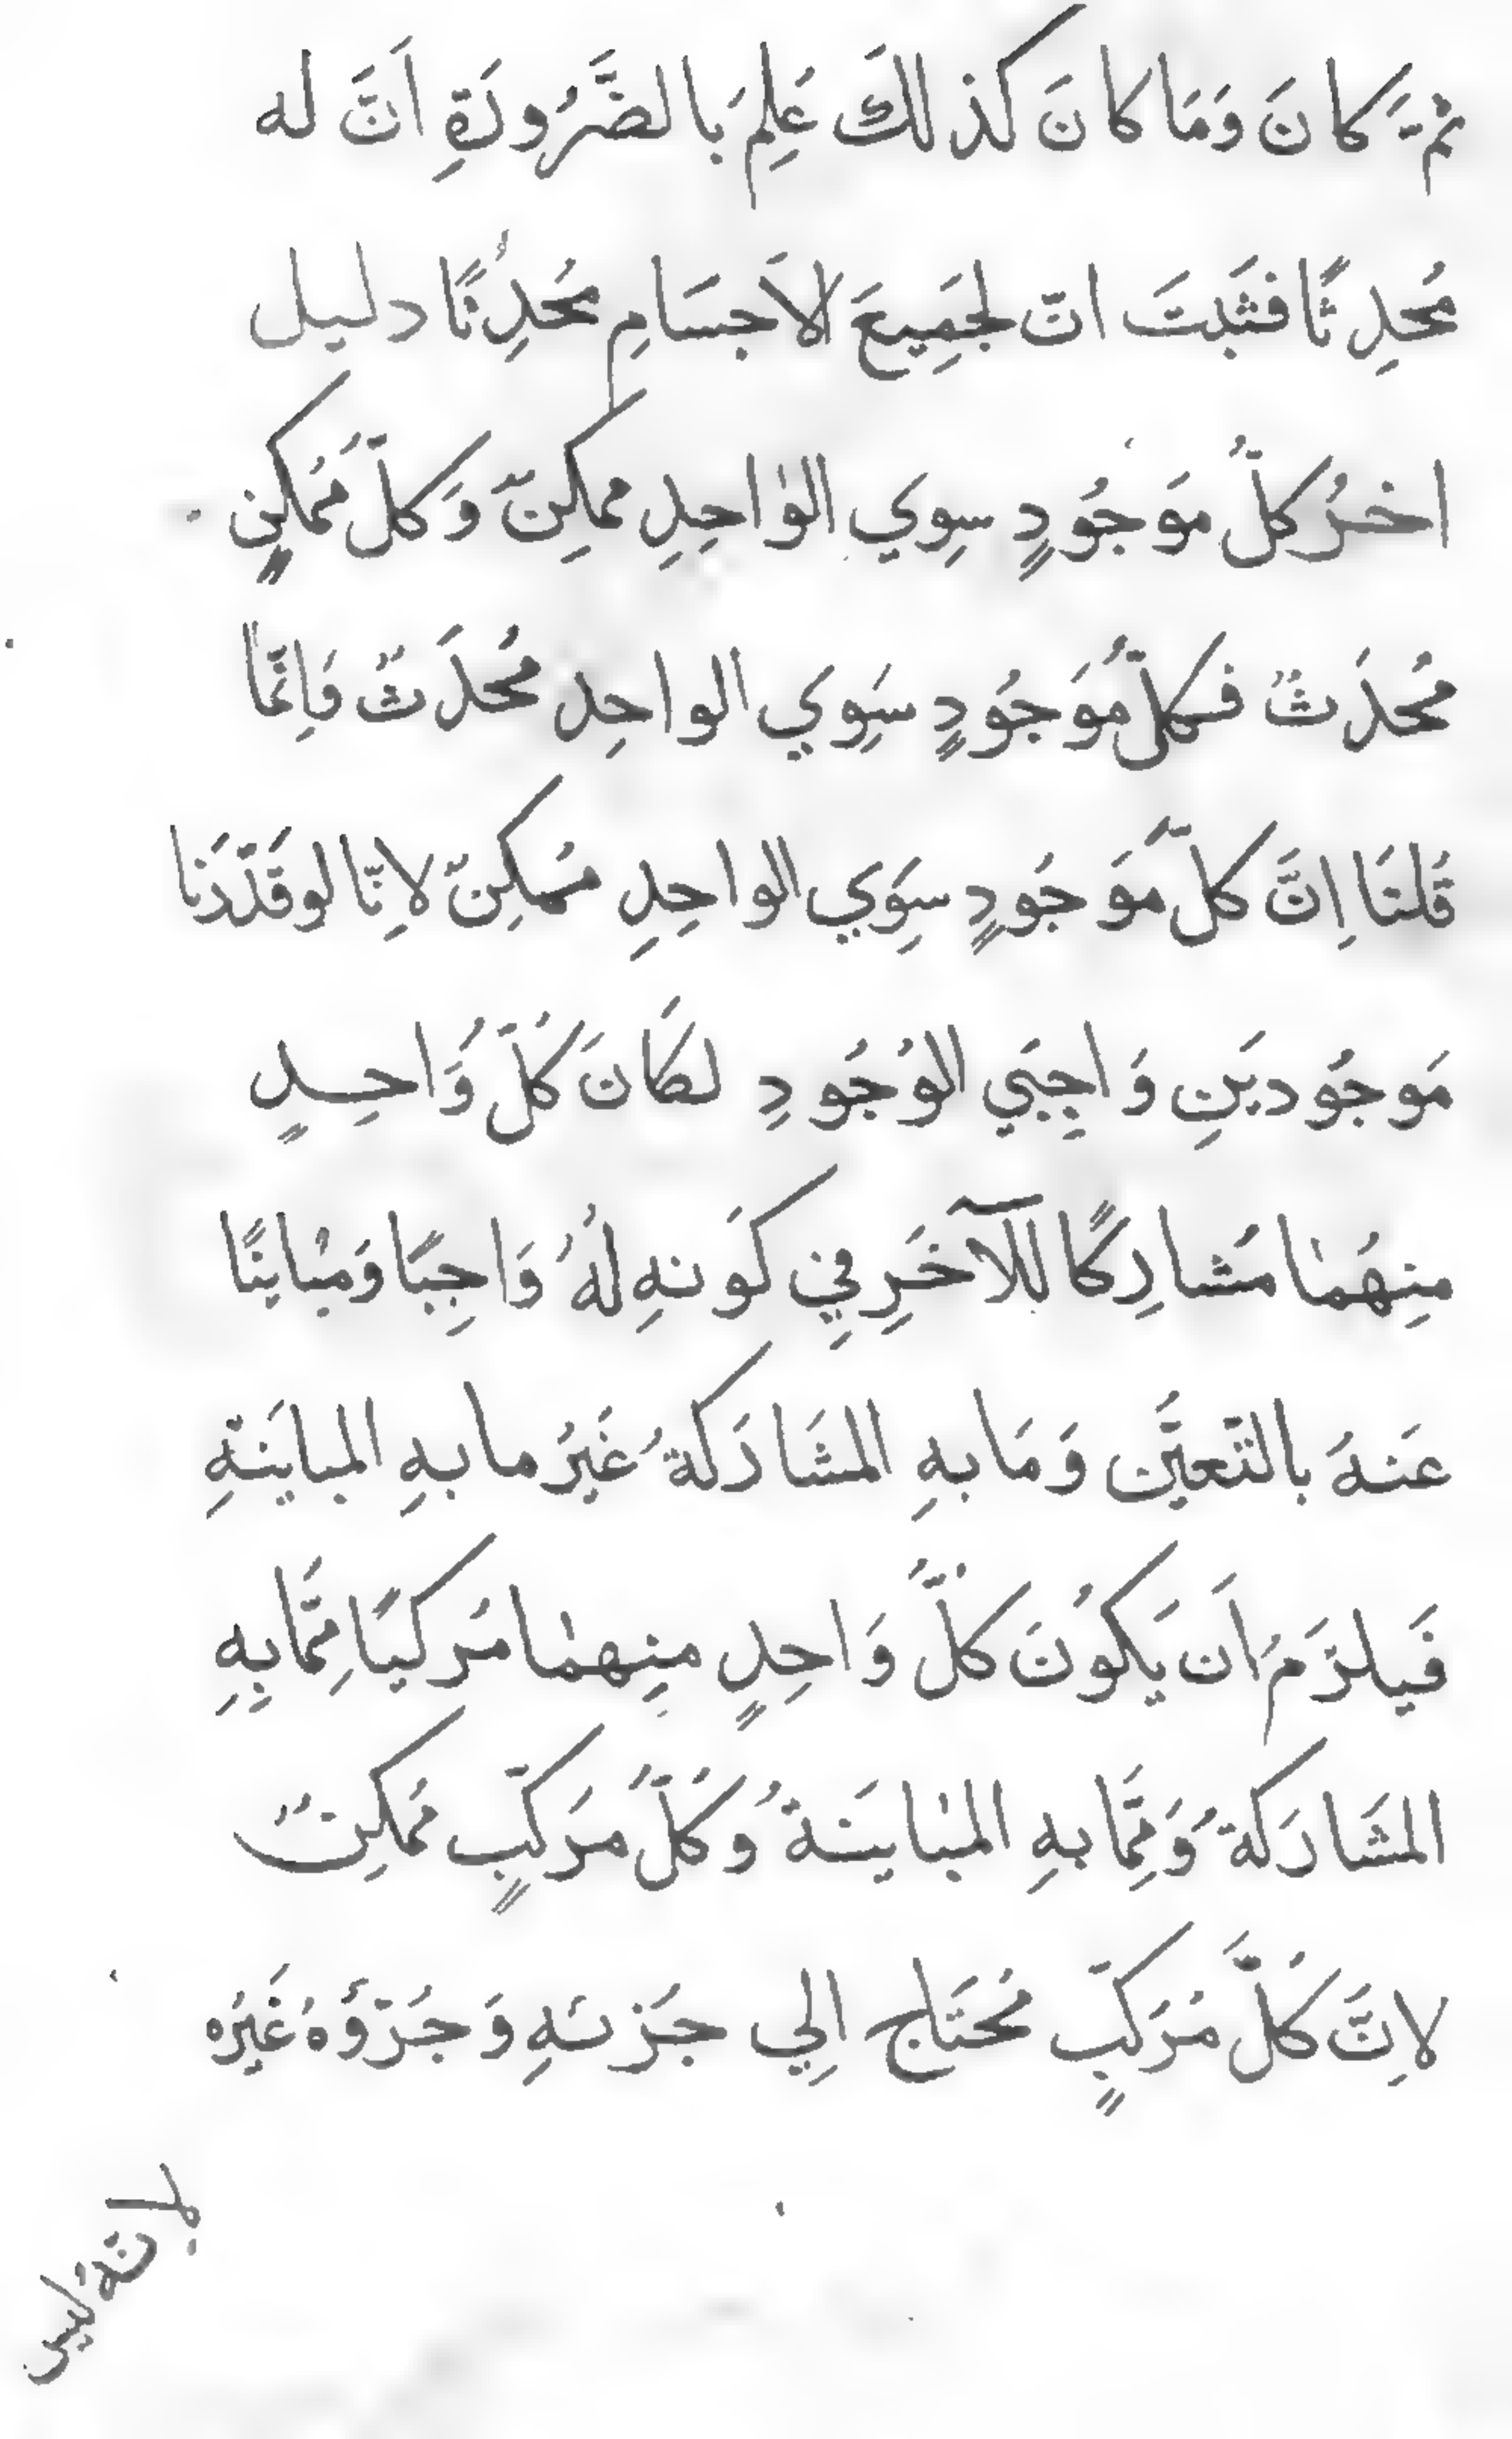 ثمَّ كانَ وَمَا كانَ كذلكَ عَلِمَ بالضَّرُورَةِ اَنَّ له
مُحدِثًا فثَبتَ انّ لجَمِيعَ الاَجسَامِ مُحدِثًا دليل
اخرُ كلُّ مَوَجُودٍ سِوي الوٰاحِدِ ممكِنٌ وَكلُّ مُمكنٍ
مُحدَثٌ فكلُّ مُوَجُودٍ سَوِي الواحِدِ مُحدَثٌ وَاِنّمَا
قُلنَا اِنَّ كلَّ مَوَجُودٍ سِوَي الواحِدِ مُمكِنٌ لاِنّا لو قَدّرَنا
مَوجُوديَنِ وَاجِبَي الوُجُودِ لكَانَ كُلُّ وَاحِدٍ
منِهُمٰا مُشارِكًا للآخَرِ فِي كوَنهِ لهُ وَاجِبًا وَمُبٰاينًا
عَنهُ بالتّعيَّنِ وَمَا بهِ المشَارَكةُ غَيرُ ما بهِ المباينَةِ
فَيلزَمَ اَن يَكوُنَ كلُّ وَاحِدٍ منِهمٰا مُركبًا مِمَّا بِهِ
المشَارَكةُ وَمِمَّا بهِ المبٰاينَةُ وَكُلُّ مرَكّبٍ مُمكِنٌ
لاِنَّ كُلَّ مُرَكّبٍ مُحتَاج اِلي جَزئهِ وَجُزؤهُ غَيرُه
لانّهُ ليس